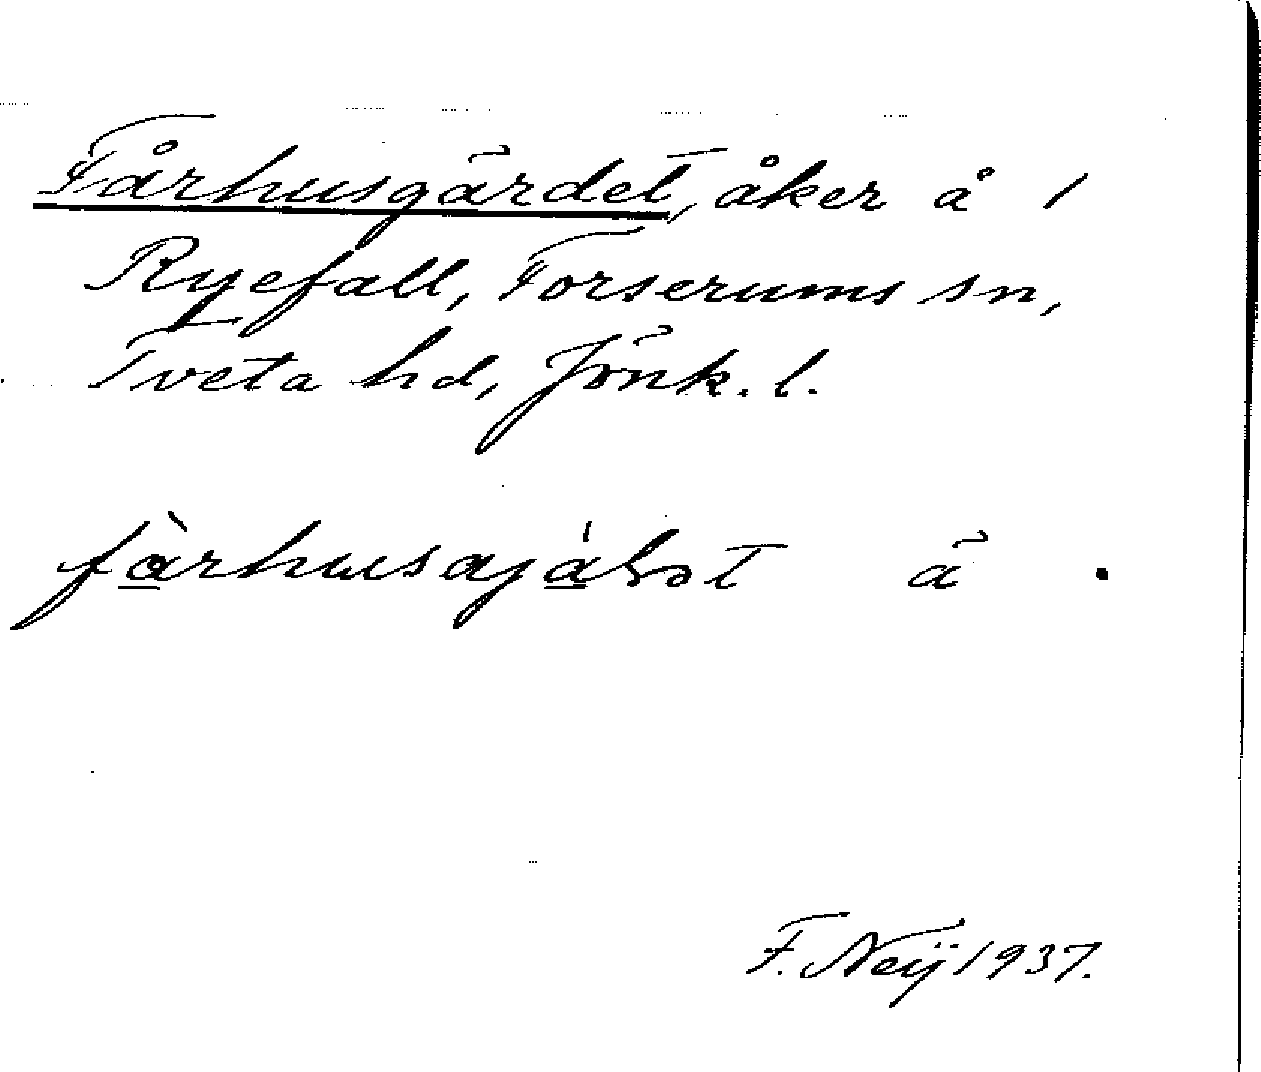 Fårhusgärdet, åker å 1
Ryefall, Forserums sn,
Tveta hd, Jönk. l.
ä .
F. Neij 1937.